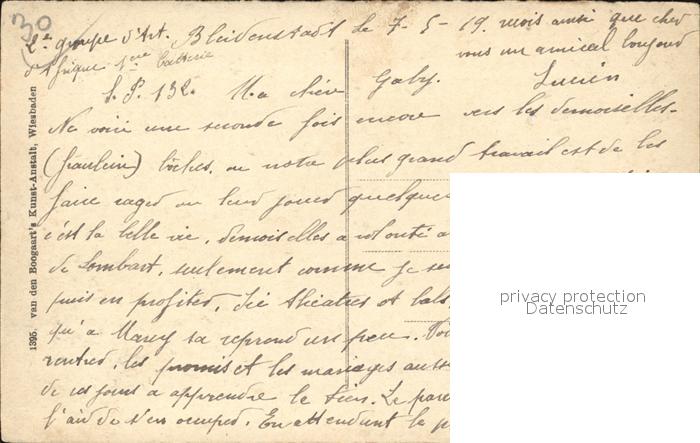 30
2e groupe d'Art. Bleidenstadt le 7-5-19. mois ainsi que chez
d'Afrique 1ere batterie vous un amical bonjour
S.P. 132. Ma chère Gaby. Lucien
Me voici une seconde fois encore vers les demoiselles-
(fräulein) boches, ou notre plus grand travail est de les
faire rager ou leur jouer quelques
c'est la belle vie, demoiselles a volonté a
de Lombart, seulement comme je
puis en profiter, Ici théatres et bals,
qu'a Marcy sa reprend un peu.
rentrer, les promis et les mariages auss
de ces jours a apprendre le tien. Le
l'air de s'en occuper. En attendant le p
1395. van den Boogaart's Kunst-Anstalt, Wiesbaden
privacy protection
Datenschutz